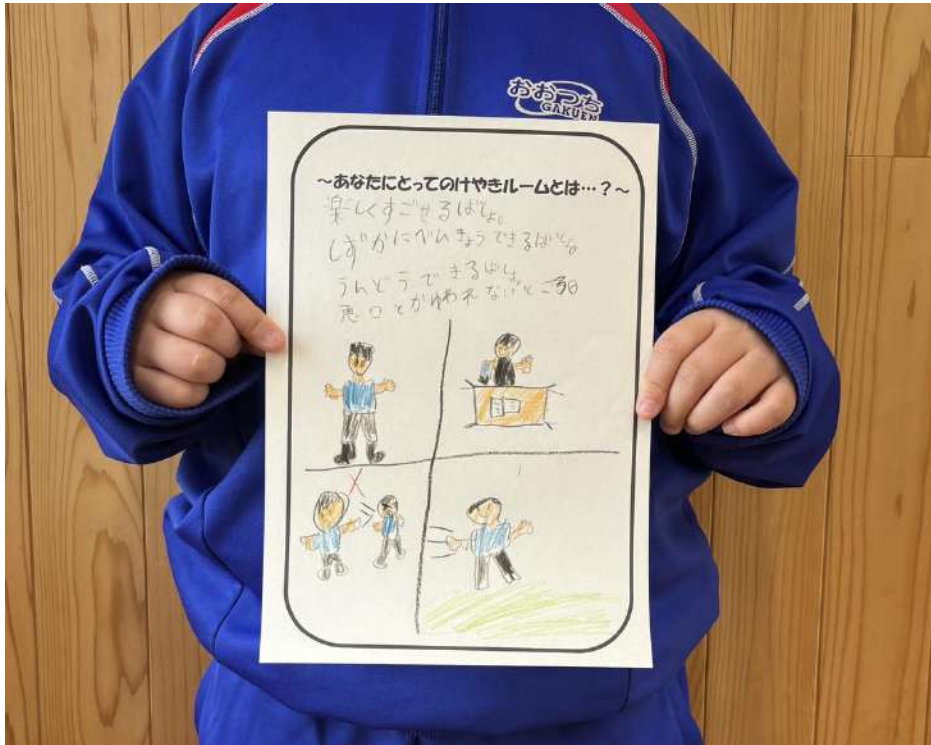 おおつち
GAKUEN
～あなたにとってのけやきルームとは…？～
楽しくすごせるばしょ。
しずかにべんきょうできるばしょ。
うんどうできるばしょ。
悪口とかいわれないところ